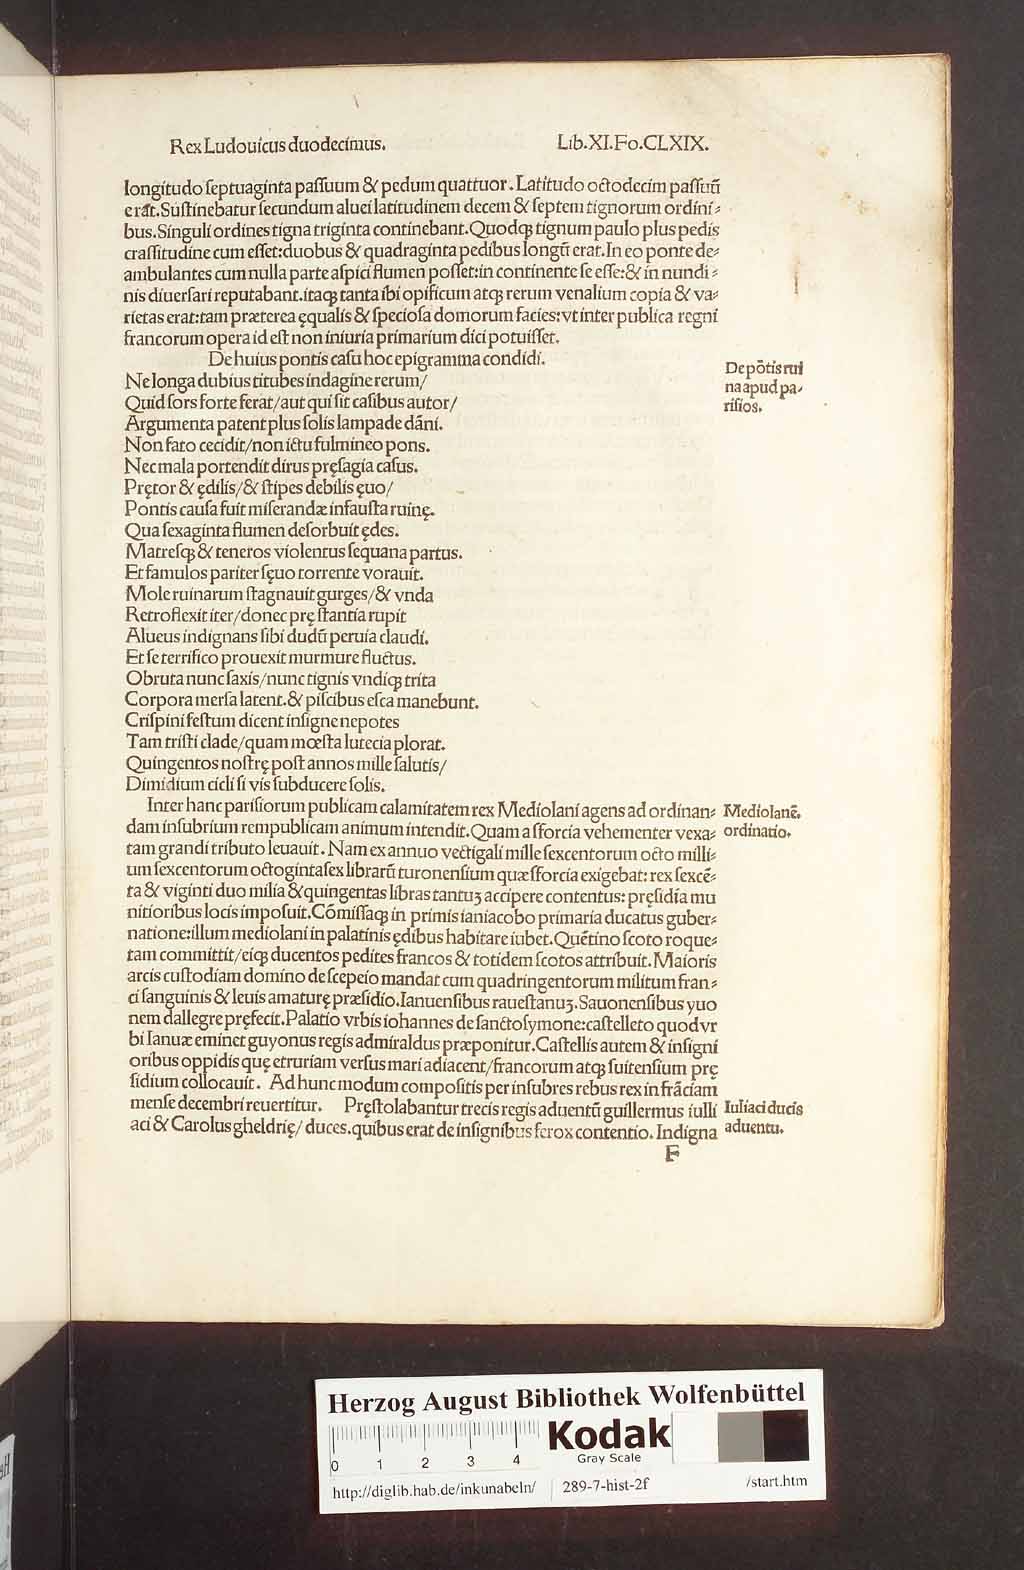 Rex Ludouicus duodecimus. Lib.XI.Fo.CLXIX.
longitudo ſeptuaginta paſſuum & pedum quattuor. Latitudo octodecim paſſuū
erat. Suſtinebatur ſecundum aluei latitudinem decem & ſeptem tignorum ordini⸗
bus. Singuli ordines tigna triginta continebant. Quodqꝫ tignum paulo plus pedis
craſſitudine cum eſſet: duobus & quadraginta pedibus longū erat. In eo ponte de⸗
ambulantes cum nulla parte aſpici flumen poſſet: in continente ſe eſſe: & in nundi⸗
nis diuerſari reputabant. itaqꝫ tanta ibi opificum atqꝫ rerum venalium copia & va⸗
rietas erat: tam præterea ęqualis & ſpecioſa domorum facies: vt inter publica regni
francorum opera id eſt non iniuria primarium dici potuiſſet.
De huius pontis caſu hoc epigramma condidi.
De pōtis rui
na apud pa⸗
riſios.
Ne longa dubius titubes indagine rerum/
Quid ſors forte ferat/aut qui ſit caſibus autor/
Argumenta patent plus ſolis lampade dāni.
Non fato cecidit/non ictu fulmineo pons.
Nec mala portendit dirus pręſagia caſus.
Prętor & ędilis/& ſtipes debilis ęuo/
Pontis cauſa fuit miſerandæ infauſta ruinę.
Qua ſexaginta flumen deſorbuit ędes.
Matreſqꝫ & teneros violentus ſequana partus.
Et famulos pariter ſęuo torrente vorauit.
Mole ruinarum ſtagnauit gurges/& vnda
Retroflexit iter/donec pręſtantia rupit
Alueus indignans ſibi dudū peruia claudi.
Et ſe terrifico prouexit murmure fluctus.
Obruta nunc ſaxis/nunc tignis vndiqꝫ trita
Corpora merſa latent. & piſcibus eſca manebunt.
Criſpini feſtum dicent inſigne nepotes
Tam triſti clade/quam mœſta lutecia plorat.
Quingentos noſtrę poſt annos mille ſalutis/
Dimidium cicli ſi vis ſubducere ſolis.
Inter hanc pariſiorum publicam calamitatem rex Mediolani agens ad ordinan⸗
dam inſubrium rempublicam animum intendit. Quam a ſforcia vehementer vexa⸗
Mediolanē.
ordinatio.
tam grandi tributo leuauit. Nam ex annuo vectigali mille ſexcentorum octo milli⸗
um ſexcentorum octoginta ſex librarū turonenſium quæ ſforcia exigebat: rex ſexcē⸗
ta & viginti duo milia & quingentas libras tantuꝫ accipere contentus: pręſidia mu
nitioribus locis impoſuit. Cōmiſſaqꝫ in primis ianiacobo primaria ducatus guber⸗
natione: illum mediolani in palatinis ędibus habitare iubet. Quētino ſcoto roque⸗
tam committit/eiqꝫ ducentos pedites francos & totidem ſcotos attribuit. Maioris
arcis cuſtodiam domino de ſcepeio mandat cum quadringentorum militum fran⸗
ci ſanguinis & leuis amaturę præſidio. Ianuenſibus raueſtanuꝫ. Sauonenſibus yuo
nem dallegre pręfecit. Palatio vrbis iohannes de ſancto ſymone: caſtelleto quod vr
bi Ianuæ eminet guyonus regis admiraldus præponitur. Caſtellis autem & inſigni
oribus oppidis quę etruriam verſus mari adiacent/francorum atqꝫ ſuitenſium prę
ſidium collocauit. Ad hunc modum compoſitis per inſubres rebus rex in frāciam
menſe decembri reuertitur. Pręſtolabantur trecis regis aduentū guillermus iulli
aci & Carolus gheldrię/ duces. quibus erat de inſignibus ferox contentio. Indigna
Iuliaci ducis
aduentu.
F
Herzog August Bibliothek Wolfenbüttel
Kodak
Gray Scale
0 1 2 3 4
http://diglib.hab.de/inkunabeln/ 289-7-hist-2f /start.htm